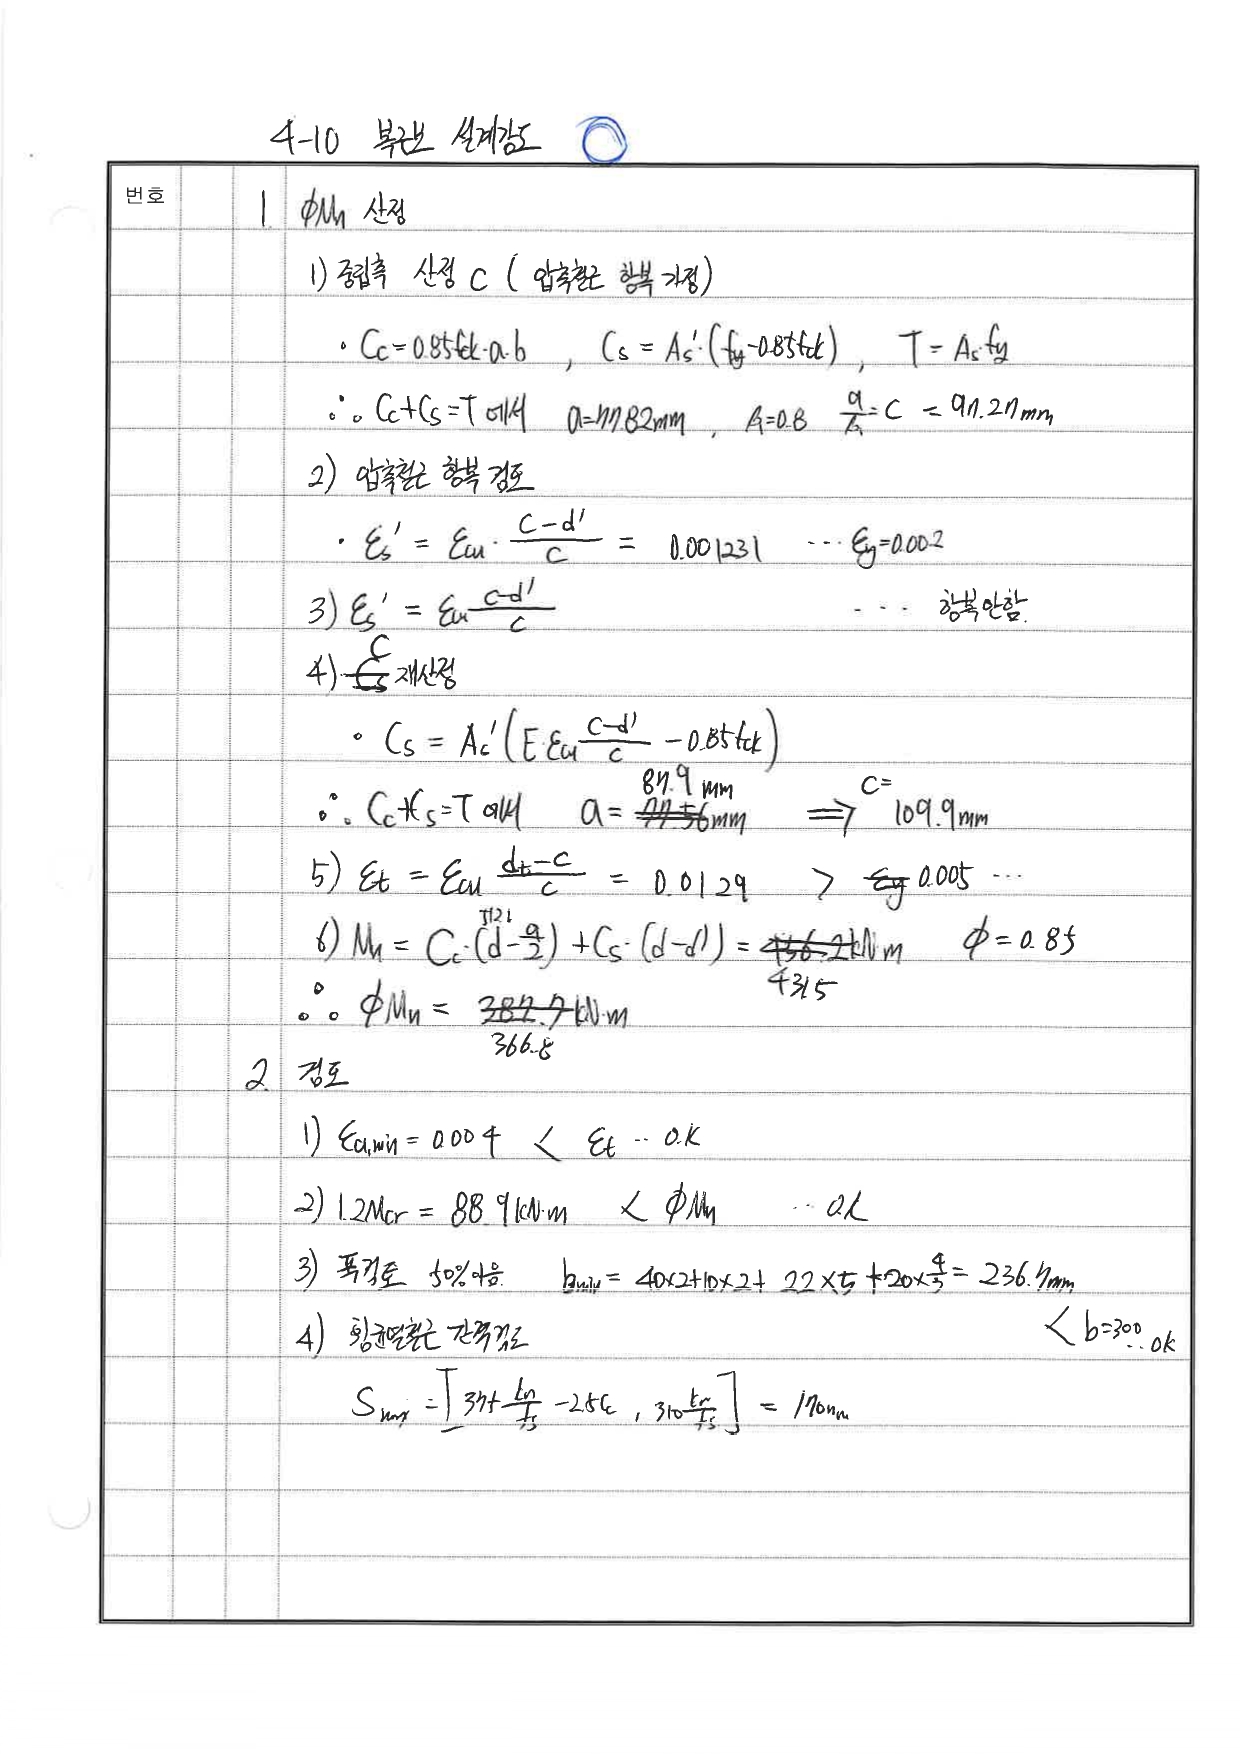 4-10 복근보 설계강도
번호
1. ϕMn 산정
1) 중립축 산정 C ( 압축철근 항복 가정)
· Cc = 0.85fck·a·b , Cs = As'·(fy-0.85fck) , T = As·fy
∴ Cc+Cs=T 에서 a=77.82mm , β1=0.8 a/β1=C = 97.27mm
2) 압축철근 항복 검토
· εs' = εcu · (C-d')/C = 0.001231 ··· εy=0.002
3) εs' = εcu (C-d')/C ··· 항복안함.
4) C 재산정
· Cs = As' (E·εcu (C-d')/C - 0.85fck)
∴ Cc+Cs=T 에서 a = 87.9 mm ⇒ C= 109.9mm
5) εt = εcu (dt-C)/C = 0.0129 > 0.005 ···
6) Mn = Cc·(d-a/2) + Cs·(d-d') = 431.5 kN·m ϕ = 0.85
∴ ϕMn = 366.8 kN·m
2. 검토
1) εa,min = 0.004 < εt ·· O.K
2) 1.2Mcr = 88.9kN·m < ϕMn ·· O.K
3) 폭검토 50%이음 bmin = 40×2+10×2+ 22×5 +20×4/3 = 236.7mm
< b=300 ·· OK
4) 휨균열철근 간격검토
Smax = [375 kcr/fs -2.5Cc , 310 kcr/fs] = 170mm